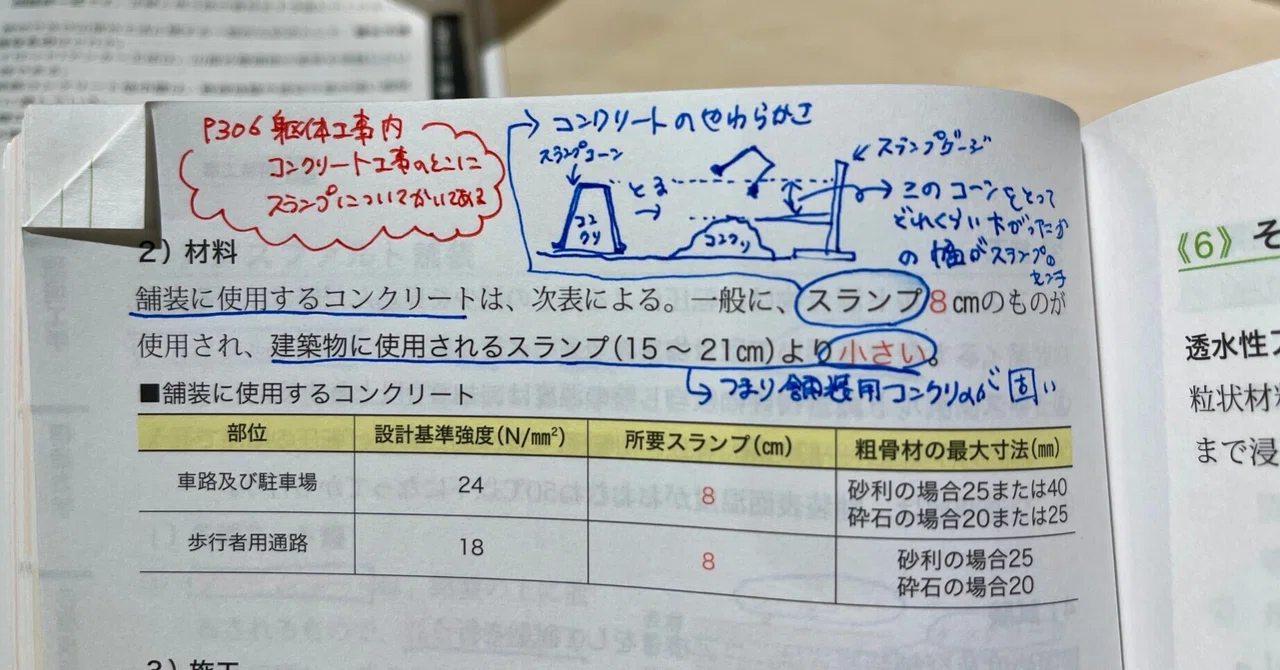 P306 躯体工事内
コンクリート工事のとこに
スランプについてかいてある
→コンクリートのやわらかさ
スランプコーン
とる
→
コンクリ
コンクリ
スランプゲージ
このコーンをとって
どれくらい下がったか
の幅がスランプの
センチ
2）材料
舗装に使用するコンクリートは、次表による。一般に、スランプ8cmのものが
使用され、建築物に使用されるスランプ（15～21cm）より小さい。
つまり舗装用コンクリのが固い
■舗装に使用するコンクリート
部位 設計基準強度（N/mm²） 所要スランプ（cm） 粗骨材の最大寸法（mm）
車路及び駐車場 24 8 砂利の場合25または40
砕石の場合20または25
歩行者用通路 18 8 砂利の場合25
砕石の場合20
3）施工
《6》そ
透水性
粒状材
まで浸